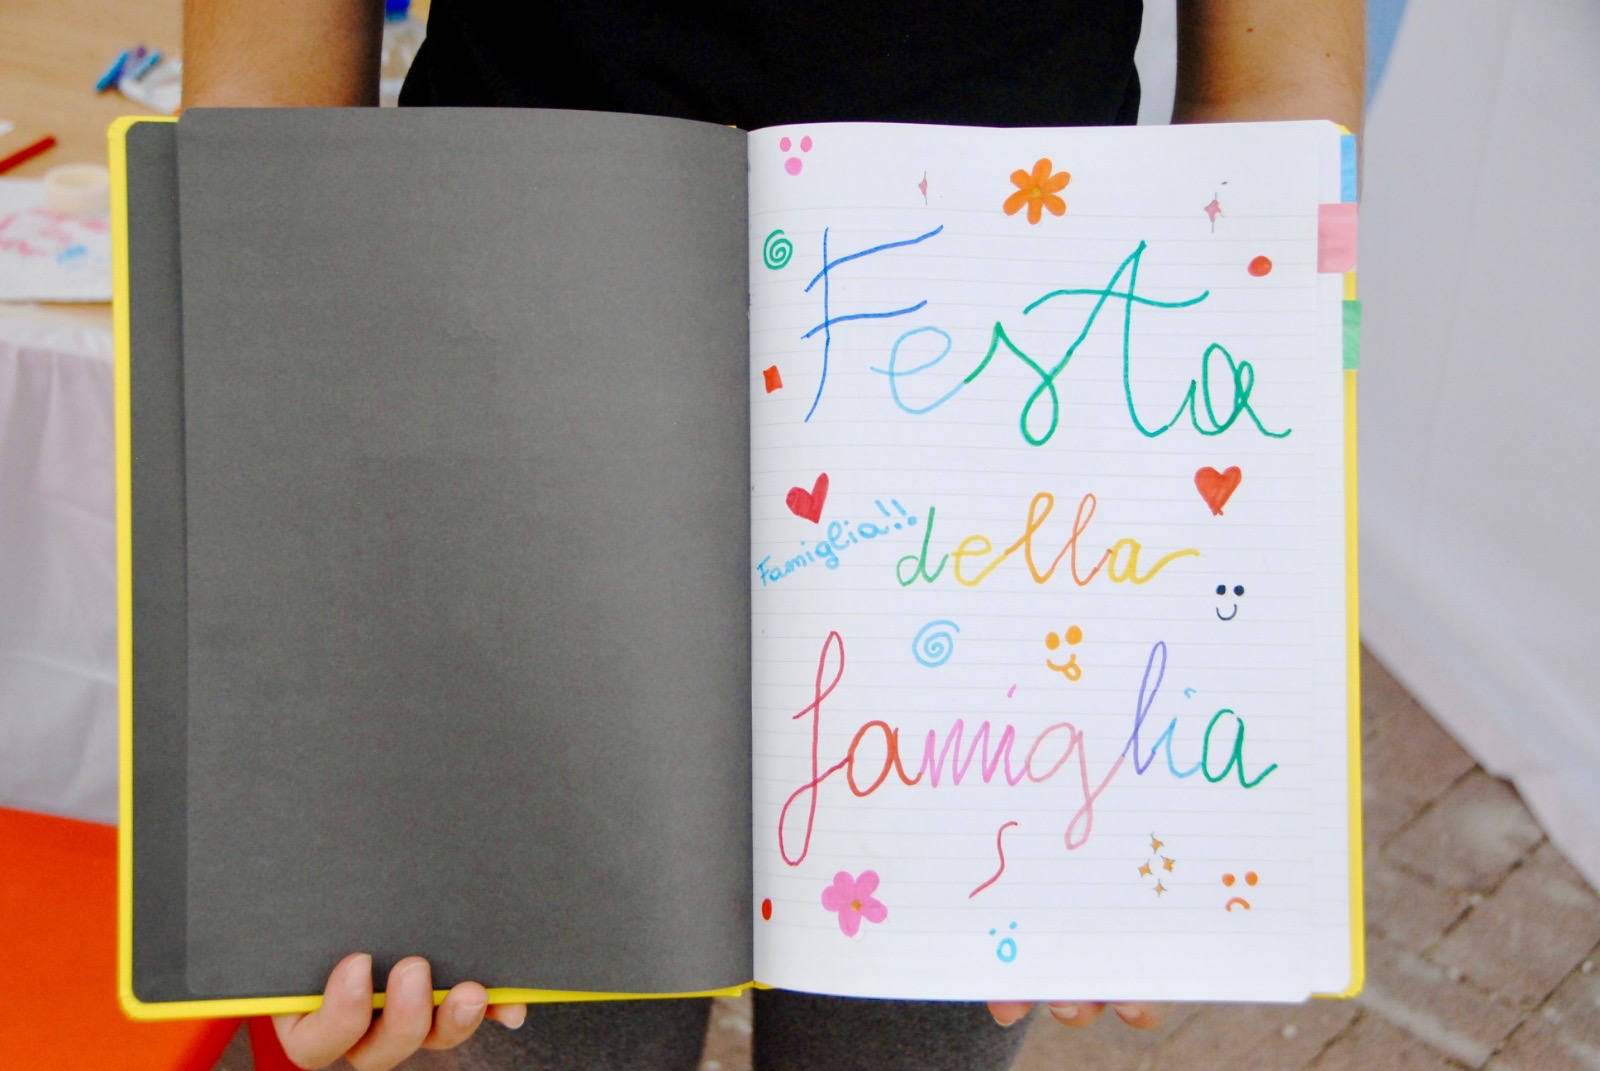 Festa
Famiglia!! della
famiglia